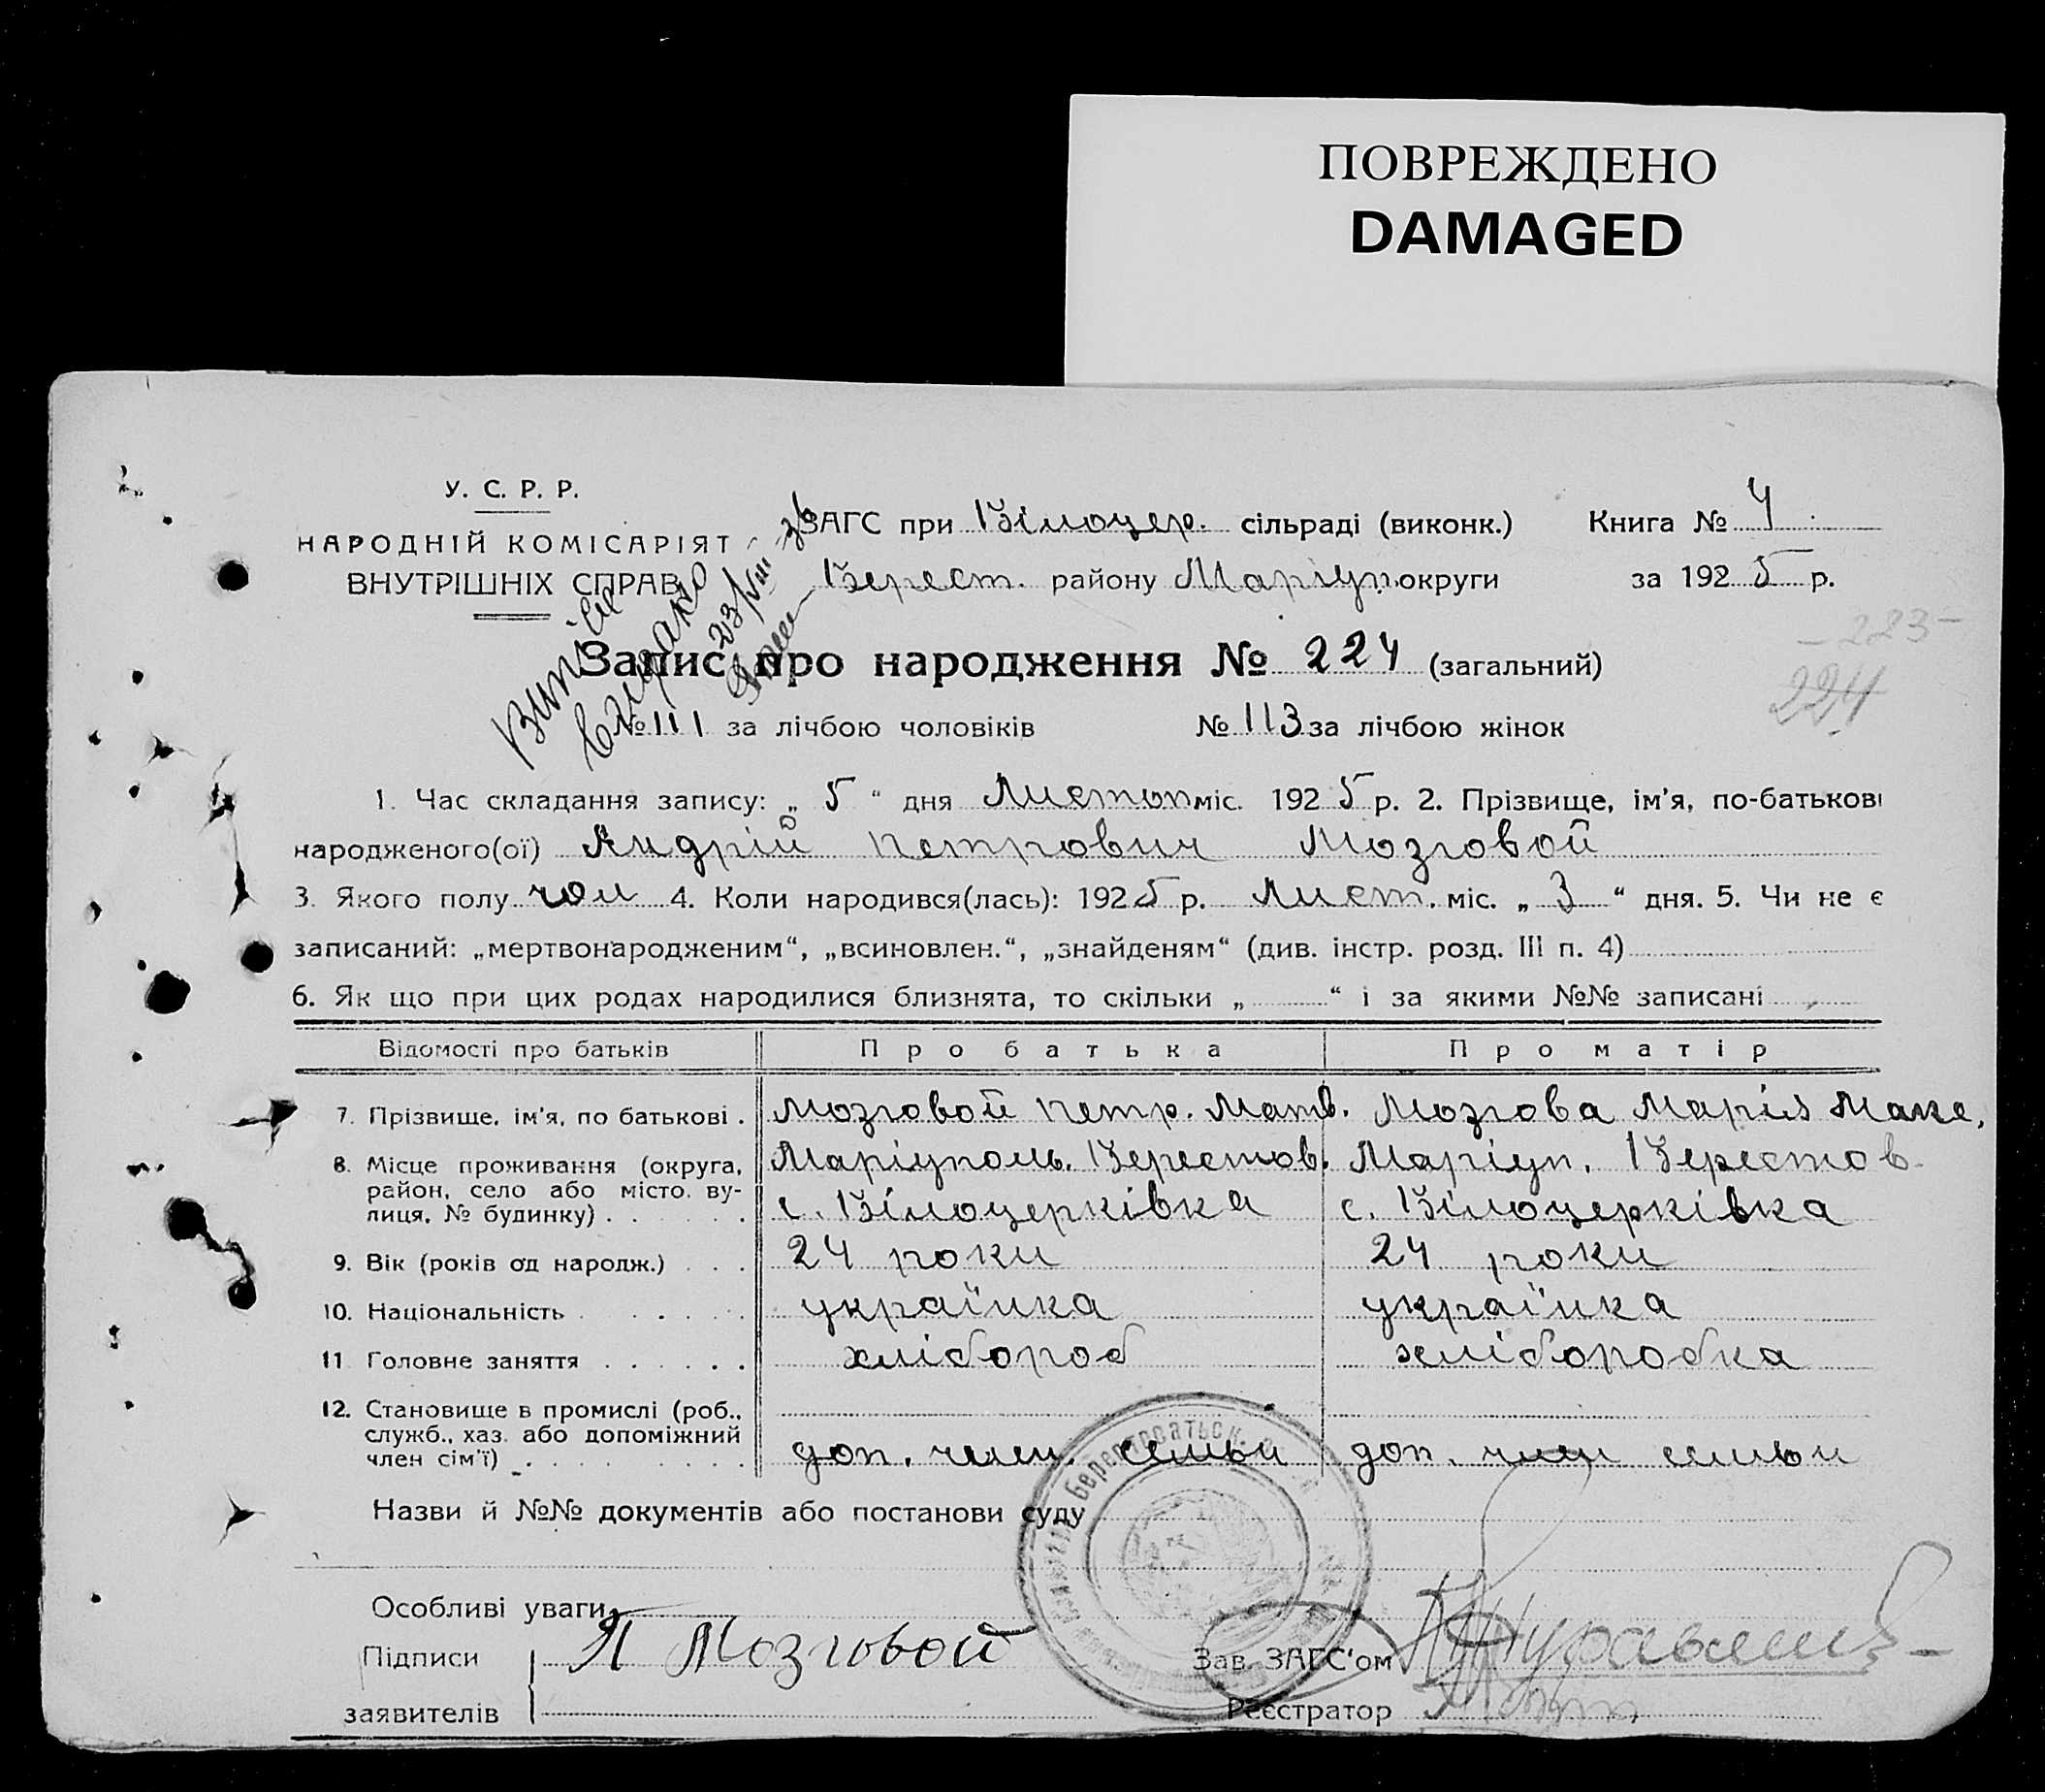 ПОВРЕЖДЕНО
DAMAGED
У. С. Р. Р.
НАРОДНІЙ КОМІСАРІЯТ
ВНУТРІШНІХ СПРАВ
ЗАГС при Білоцер. сільраді (виконк.) Книга № 4
Берест. району Маріуп. округи за 1925 р.
Запис про народження № 224 (загальний)
- 223 -
224
№ 111 за лічбою чоловіків № 113 за лічбою жінок
1. Час складання запису: „ 5 “ дня Листоп міс. 1925 р. 2. Прізвище, ім'я, по-батькові
народженого(ої) Андрій Петрович Мозговой
3. Якого полу чол 4. Коли народився(лась): 1925 р. Лист. міс. „ 3 “ дня. 5. Чи не є
записаний: „мертвонародженим“, „всиновлен.“, „знайденям“ (див. інстр. розд. III п. 4)
6. Як що при цих родах народилися близнята, то скільки „ “ і за якими №№ записані
Відомості про батьків Про батька Про матір
7. Прізвище, ім'я, по батькові . Мозговой Петр. Матв. Мозгова Марія Макс.
8. Місце проживання (округа, Маріуполь. Берестов. Маріуп. Берестов.
район, село або місто, ву-
лиця, № будинку) . с. Білоцерківка с. Білоцерківка
9. Вік (років од народж.) . . . 24 роки 24 роки
10. Національність . українка українка
11. Головне заняття . хлібороб хліборобка
12. Становище в промислі (роб.,
служб., хаз. або допоміжний
член сім'ї) . доп. член. семьи доп. член семьи
Назви й №№ документів або постанови суду
Особливі уваги
Підписи П Мозговой Зав. ЗАГС'ом
заявителів Реєстратор